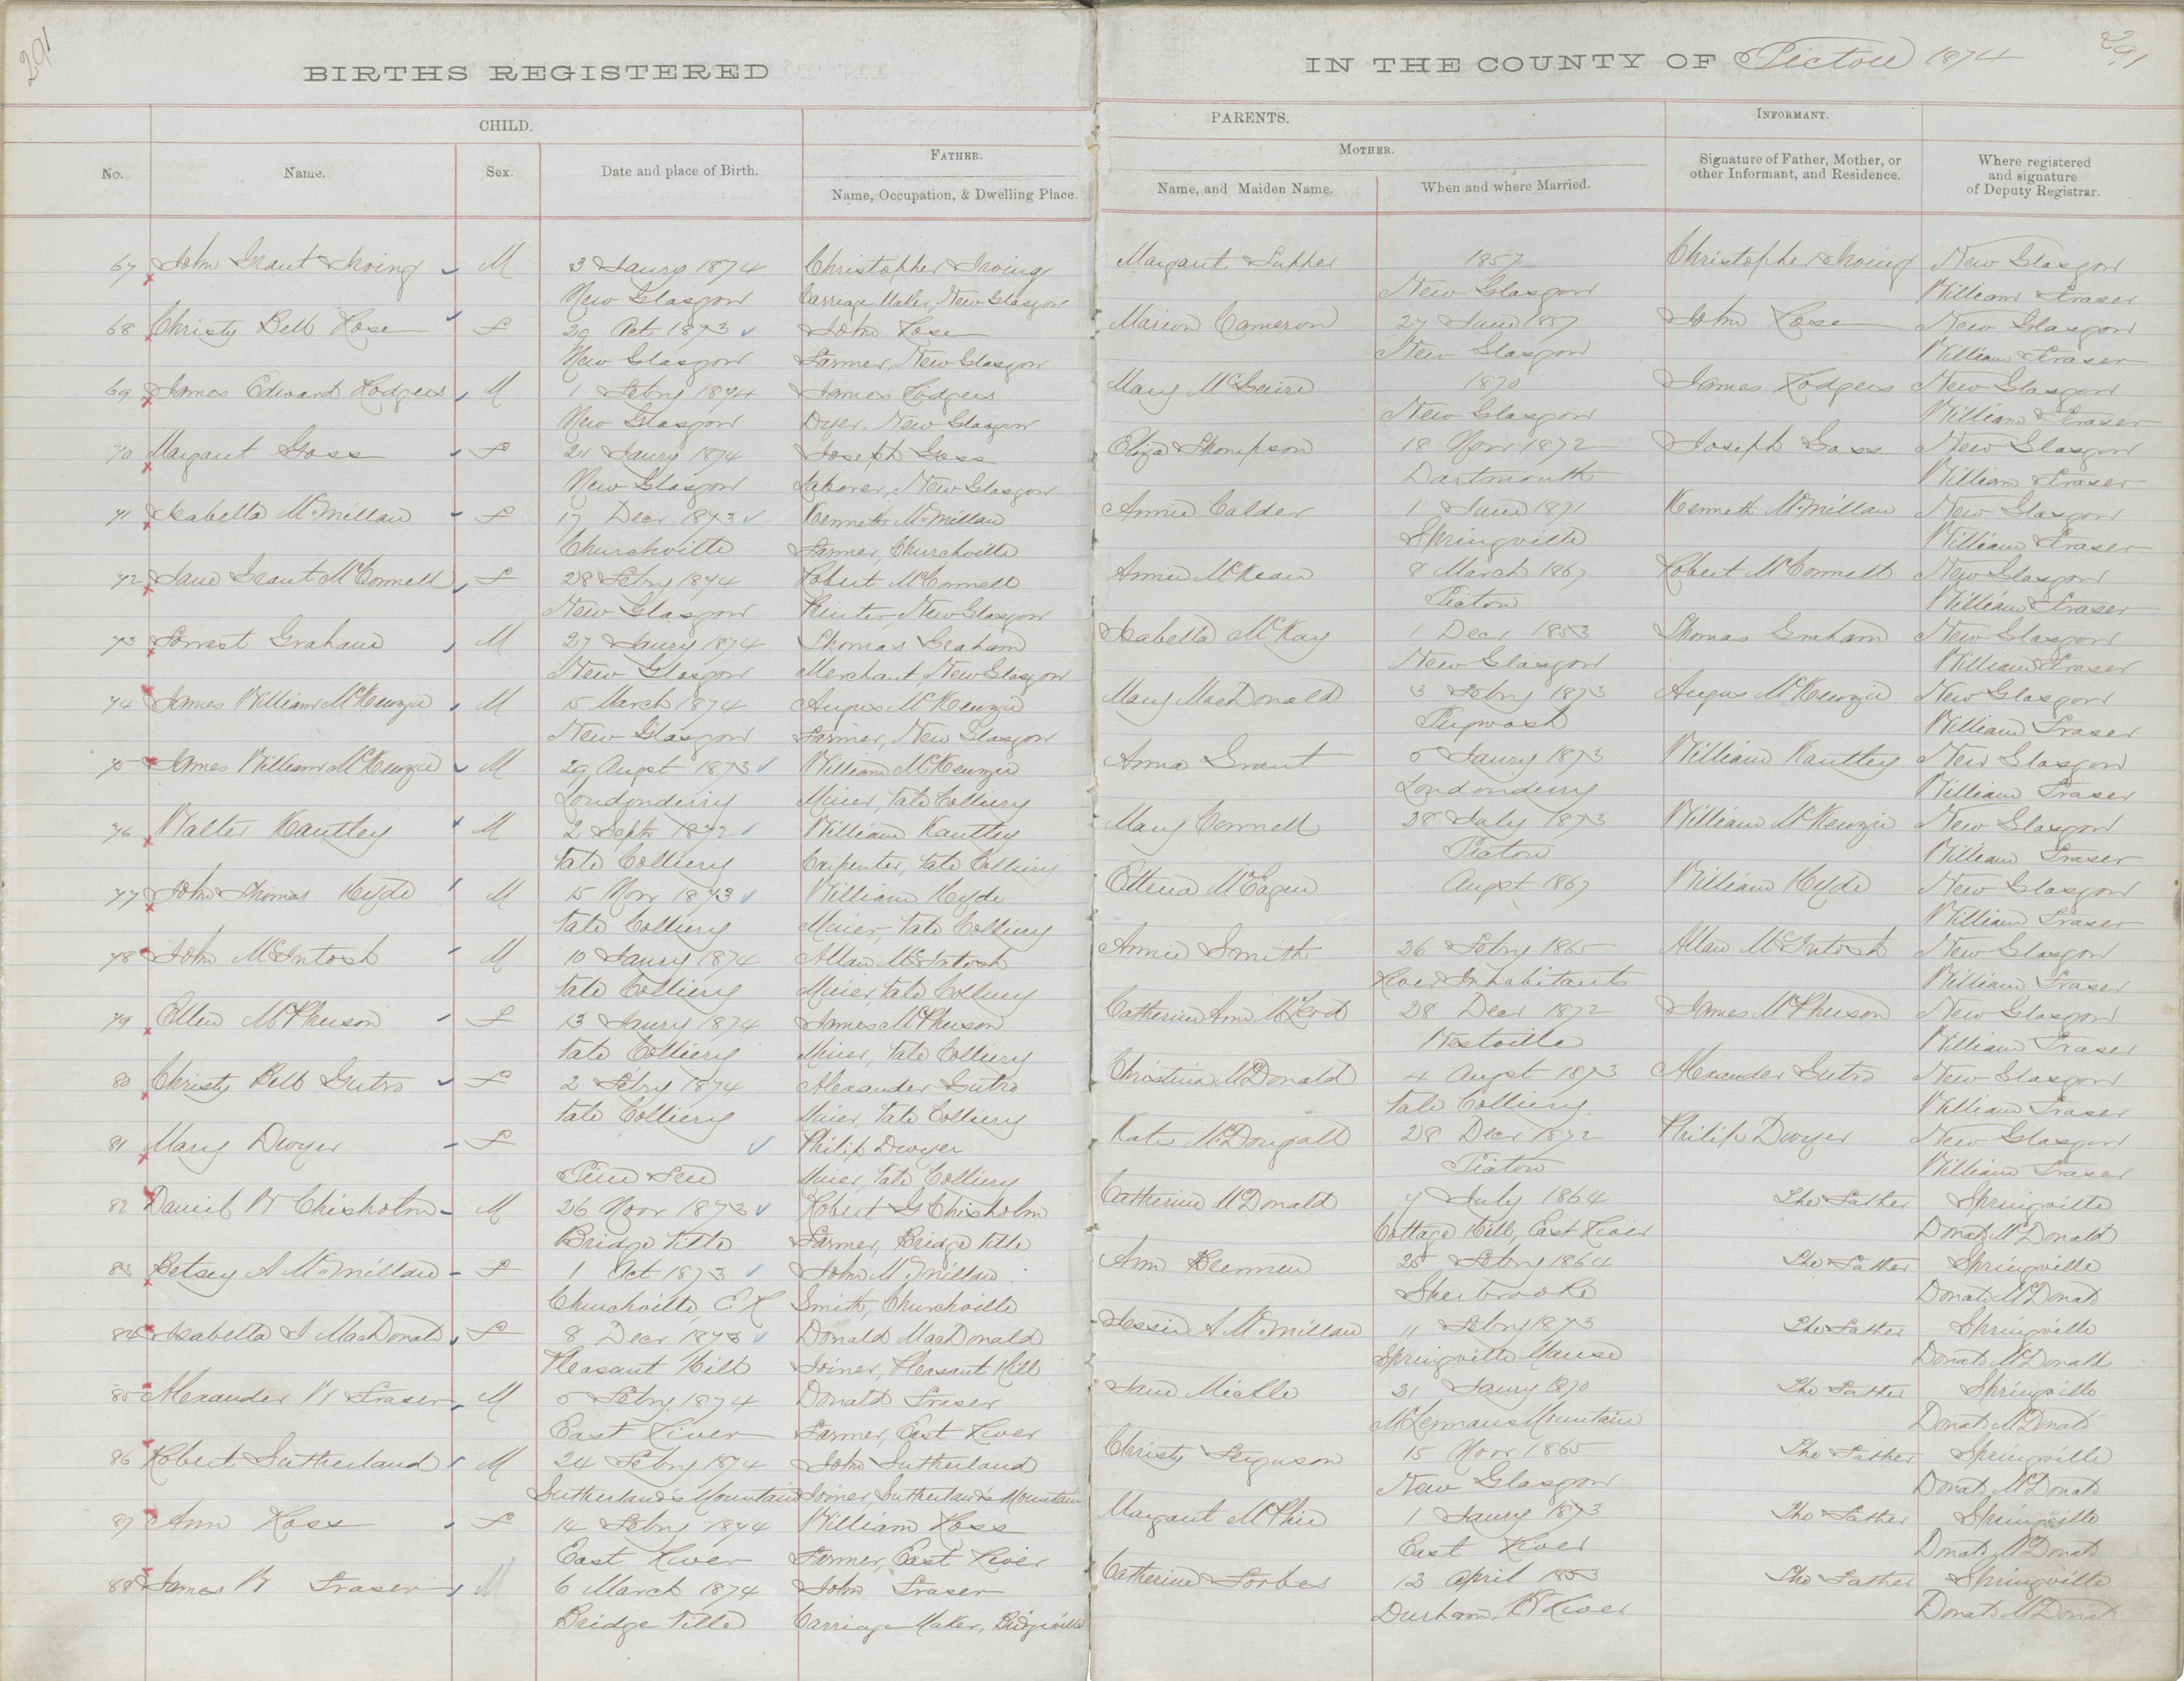 291
BIRTHS REGISTERED
IN THE COUNTY OF Pictou 1874
291
CHILD.
PARENTS.
INFORMANT.
No.
Name.
Sex.
Date and place of Birth.
FATHER.
Name, Occupation, & Dwelling Place.
MOTHER.
Name, and Maiden Name.
When and where Married.
Signature of Father, Mother, or
other Informant, and Residence.
Where registered
and signature
of Deputy Registrar.
67 John Grant Irving M 3 Jany 1874 Christopher Irving Margaret 1857 Christopher Irving New Glasgow
New Glasgow Carriage Maker, New Glasgow New Glasgow William Fraser
68 Christy Bell Rose F 29 Oct 1873 John Rose Marion Cameron 27 June 1857 John Rose New Glasgow
New Glasgow Farmer, New Glasgow New Glasgow William Fraser
69 James Edward Rodgers M 1 Febry 1874 James Rodgers Mary McGuire 1870 James Rodgers New Glasgow
New Glasgow Dyer, New Glasgow New Glasgow William Fraser
70 Margaret Goss F 21 Jany 1874 Joseph Goss Eliza Thompson 18 Novr 1872 Joseph Goss New Glasgow
New Glasgow Laborer, New Glasgow Dartmouth William Fraser
71 Isabella McMillan F 17 Decr 1873 Kenneth McMillan Annie Calder 1 June 1871 Kenneth McMillan New Glasgow
Churchville Farmer, Churchville Springville William Fraser
72 Jane Grant McConnell F 28 Febry 1874 Robert McConnell Annie McKean 8 March 1867 Robert McConnell New Glasgow
New Glasgow Printer, New Glasgow Pictou William Fraser
73 Forrest Graham M 27 Jany 1874 Thomas Graham Isabella McKay 1 Decr 1853 Thomas Graham New Glasgow
New Glasgow Merchant, New Glasgow New Glasgow William Fraser
74 James William McKenzie M 15 March 1874 Angus McKenzie Mary MacDonald 3 Febry 1873 Angus McKenzie New Glasgow
New Glasgow Farmer, New Glasgow Pugwash William Fraser
75 James William McKenzie M 29 Augst 1873 William McKenzie Anna Grant 5 Jany 1873 William Kantley New Glasgow
Londonderry Miner, Vale Colliery Londonderry William Fraser
76 Walter Kantley M 2 Septr 1872 William Kantley Mary Connell 28 July 1873 William McKenzie New Glasgow
Vale Colliery Carpenter, Vale Colliery Pictou William Fraser
77 John Thomas Hyde M 15 Novr 1873 William Hyde McEagen Augst 1867 William Hyde New Glasgow
Vale Colliery Miner, Vale Colliery William Fraser
78 John McIntosh M 10 Jany 1874 Allan McIntosh Annie Smith 26 Febry 1865 Allan McIntosh New Glasgow
Vale Colliery Miner, Vale Colliery River Inhabitants William Fraser
79 Ellen McPherson F 13 Jany 1874 James McPherson Catherine Ann McLeod 28 Decr 1872 James McPherson New Glasgow
Vale Colliery Miner, Vale Colliery Westville William Fraser
80 Christy Bell Gutro F 2 Febry 1874 Alexander Gutro Christina McDonald 4 Augst 1873 Alexander Gutro New Glasgow
Vale Colliery Miner, Vale Colliery Vale Colliery William Fraser
81 Mary Dwyer F Philip Dwyer Kate McDougall 28 Decr 1872 Philip Dwyer New Glasgow
Pine Tree Miner, Vale Colliery Pictou William Fraser
82 Daniel W Chisholm M 26 Novr 1873 Robert G Chisholm Catherine McDonald 7 July 1864 The Father Springville
Bridge Ville Farmer, Bridge Ville Cottage Hill, East River Donald McDonald
83 Betsey A McMillan F 1 Oct 1873 John McMillan Ann 25 Febry 1864 The Father Springville
Churchville, E R Smith, Churchville Sherbrooke Donald McDonald
84 Isabella J MacDonald F 8 Decr 1873 Donald MacDonald Jessie A McMillan 11 Febry 1873 The Father Springville
Pleasant Hill Joiner, Pleasant Hill Springville Manse Donald McDonald
85 Alexander W Fraser M 5 Febry 1874 Donald Fraser Jane Mickle 31 Jany 1870 The Father Springville
East River Farmer, East River McLennans Mountain Donald McDonald
86 Robert Sutherland M 24 Febry 1874 John Sutherland Christy Ferguson 15 Novr 1865 The Father Springville
Sutherland's Mountain Joiner, Sutherland's Mountain New Glasgow Donald McDonald
87 Ann Ross F 14 Febry 1874 William Ross Margaret McPhie 1 Jany 1873 The Father Springville
East River Farmer, East River East River Donald McDonald
88 James W Fraser M 6 March 1874 John Fraser Catherine Forbes 12 April 1853 The Father Springville
Bridge Ville Carriage Maker, Bridgeville Durham, W River Donald McDonald